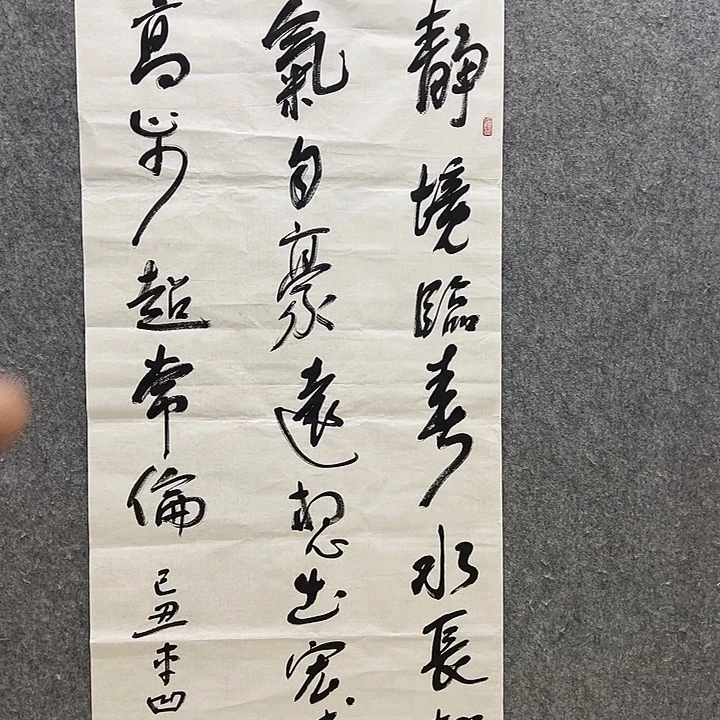 靜境臨春水長
氣自豪遠想出宏
高步超常倫
己丑 凹